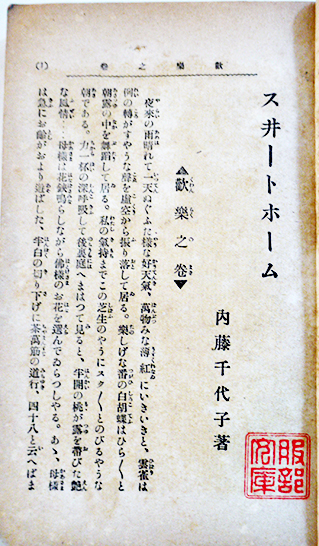 (1)
歡樂之卷
ス井ートホーム
內藤千代子著
▲歡樂之卷▼
夜來の雨晴れて一天ぬぐふた樣な好天氣、萬物みな薄紅にいきいきと、雲雀は
例の轉がすやうな聲を虛空から振り落して居る。樂しげな番の白胡蝶はひら〳〵と
朝露の中を舞踏して居る。私の氣持までこの芝生のやうにスク〳〵とのびるやうな
朝である。力一杯の深呼吸して後裏庭へまはつて見ると、半開の桃が露を帶びた艷
な風情……母樣は花鋏鳴らしながら佛樣のお花を選んでゐらつしやる。あゝ、母樣
は急にお齡がおより遊ばした、半白の切り下げに茶萬筋の道行、四十八と云へばま
服部
文庫